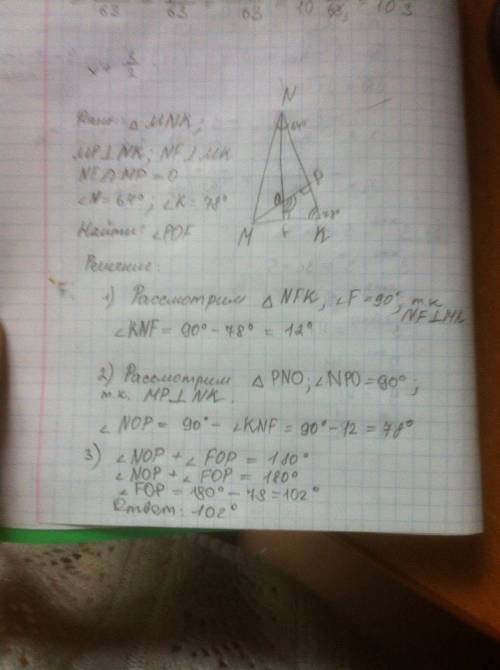 63 63 63
Дано: △ MNK;
MP⊥NK; NF⊥MK
NF∩MP=O
∠N=64°; ∠K=78°
Найти: ∠POF
N
64°
P
O
78°
M
F
K
Решение:
1) Рассмотрим △ NFK, ∠F=90°, т.к
NF⊥MK
∠KNF = 90° - 78° = 12°
2) Рассмотрим △ PNO; ∠NPO=90°;
т.к. MP⊥NK.
∠ NOP = 90° - ∠KNF = 90° - 12 = 78°
3) ∠NOP + ∠ FOP = 180°
∠NOP + ∠ FOP = 180°
∠FOP = 180° - 78 = 102°
Ответ: 102°